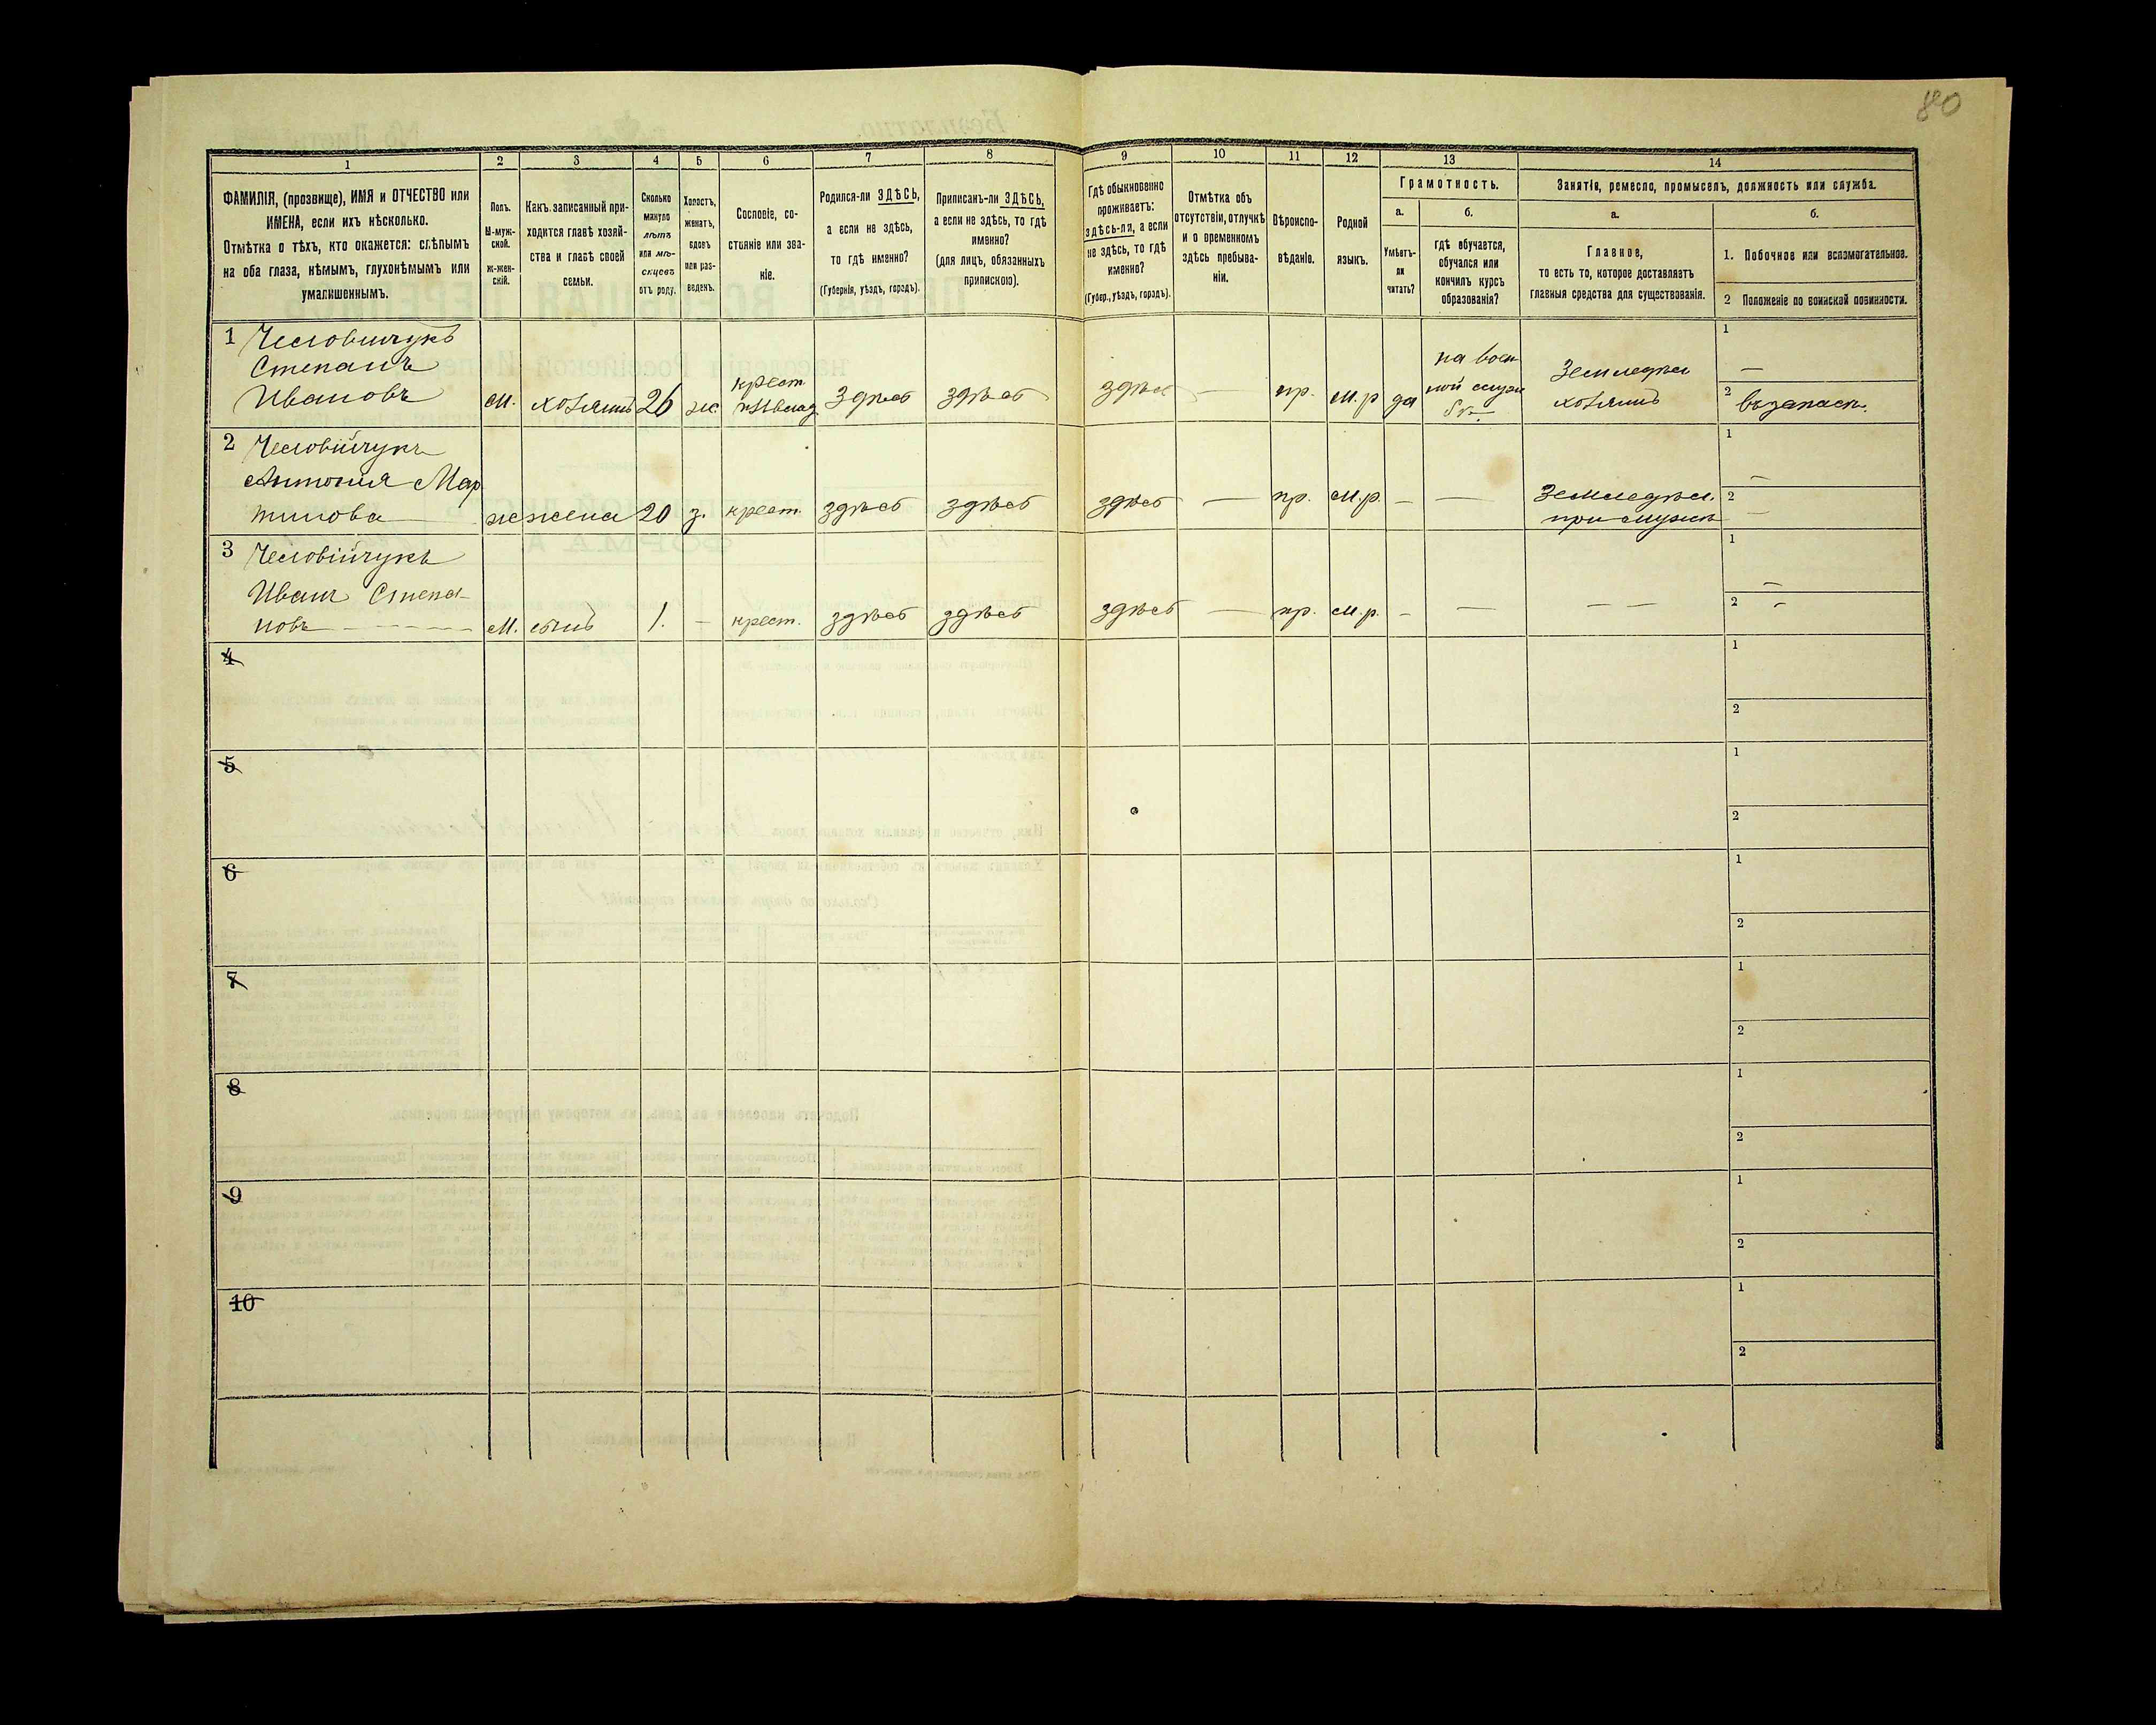 80
1
2
3
4
5
6
7
8
9
10
11
12
13
14
ФАМИЛІЯ, (прозвище), ИМЯ и ОТЧЕСТВО или
ИМЕНА, если ихъ нѣсколько.
Отмѣтка о тѣхъ, кто окажется: слѣпымъ
на оба глаза, нѣмымъ, глухонѣмымъ или
умалишеннымъ.
Полъ.
М-муж-
ской.
ж-жен-
скій.
Какъ записанный при-
ходится главѣ хозяй-
ства и главѣ своей
семьи.
Сколько
минуло
лѣтъ
или мѣ-
сяцевъ
отъ роду.
Холостъ,
женатъ,
вдовъ
или раз-
веденъ.
Сословіе, со-
стояніе или зва-
ніе.
Родился-ли ЗДѢСЬ,
а если не здѣсь,
то гдѣ именно?
(Губернія, уѣздъ, городъ).
Приписанъ-ли ЗДѢСЬ,
а если не здѣсь, то гдѣ
именно?
(для лицъ, обязанныхъ
припискою).
Гдѣ обыкновенно
проживаетъ:
здѣсь-ли, а если
не здѣсь, то гдѣ
именно?
(Губер., уѣздъ, городъ).
Отмѣтка объ
отсутствіи, отлучкѣ
и о временномъ
здѣсь пребыва-
ніи.
Вѣроиспо-
вѣданіе.
Родной
языкъ.
Грамотность.
а.
Умѣетъ-
ли
читать?
б.
гдѣ обучается,
обучался или
кончилъ курсъ
образованія?
Занятіе, ремесло, промыселъ, должность или служба.
а.
Главное,
то есть то, которое доставляетъ
главныя средства для существованія.
б.
1. Побочное или вспомогательное.
2 Положеніе по воинской повинности.
1 Человийчукъ
Степанъ
Ивановъ
м. хозяинъ 26 ж. крест.
здѣсь здѣсь здѣсь — пр. м.р да
на воен
ной служ
бѣ
Земледѣл
хозяинъ
1 —
2 въ запасѣ.
2 Человійчукъ
Антонія Мар
тинова
ж жена 20 з. крест. здѣсь здѣсь здѣсь — пр. м.р — —
Земледѣл.
при мужѣ
1 —
2 —
3 Человійчукъ
Иванъ Степа-
новъ
м. сынъ 1. — крест. здѣсь здѣсь здѣсь — пр. м.р. — — — —
1 —
2 —
4
1
2
5
1
2
6
1
2
7
1
2
8
1
2
9
1
2
10
1
2